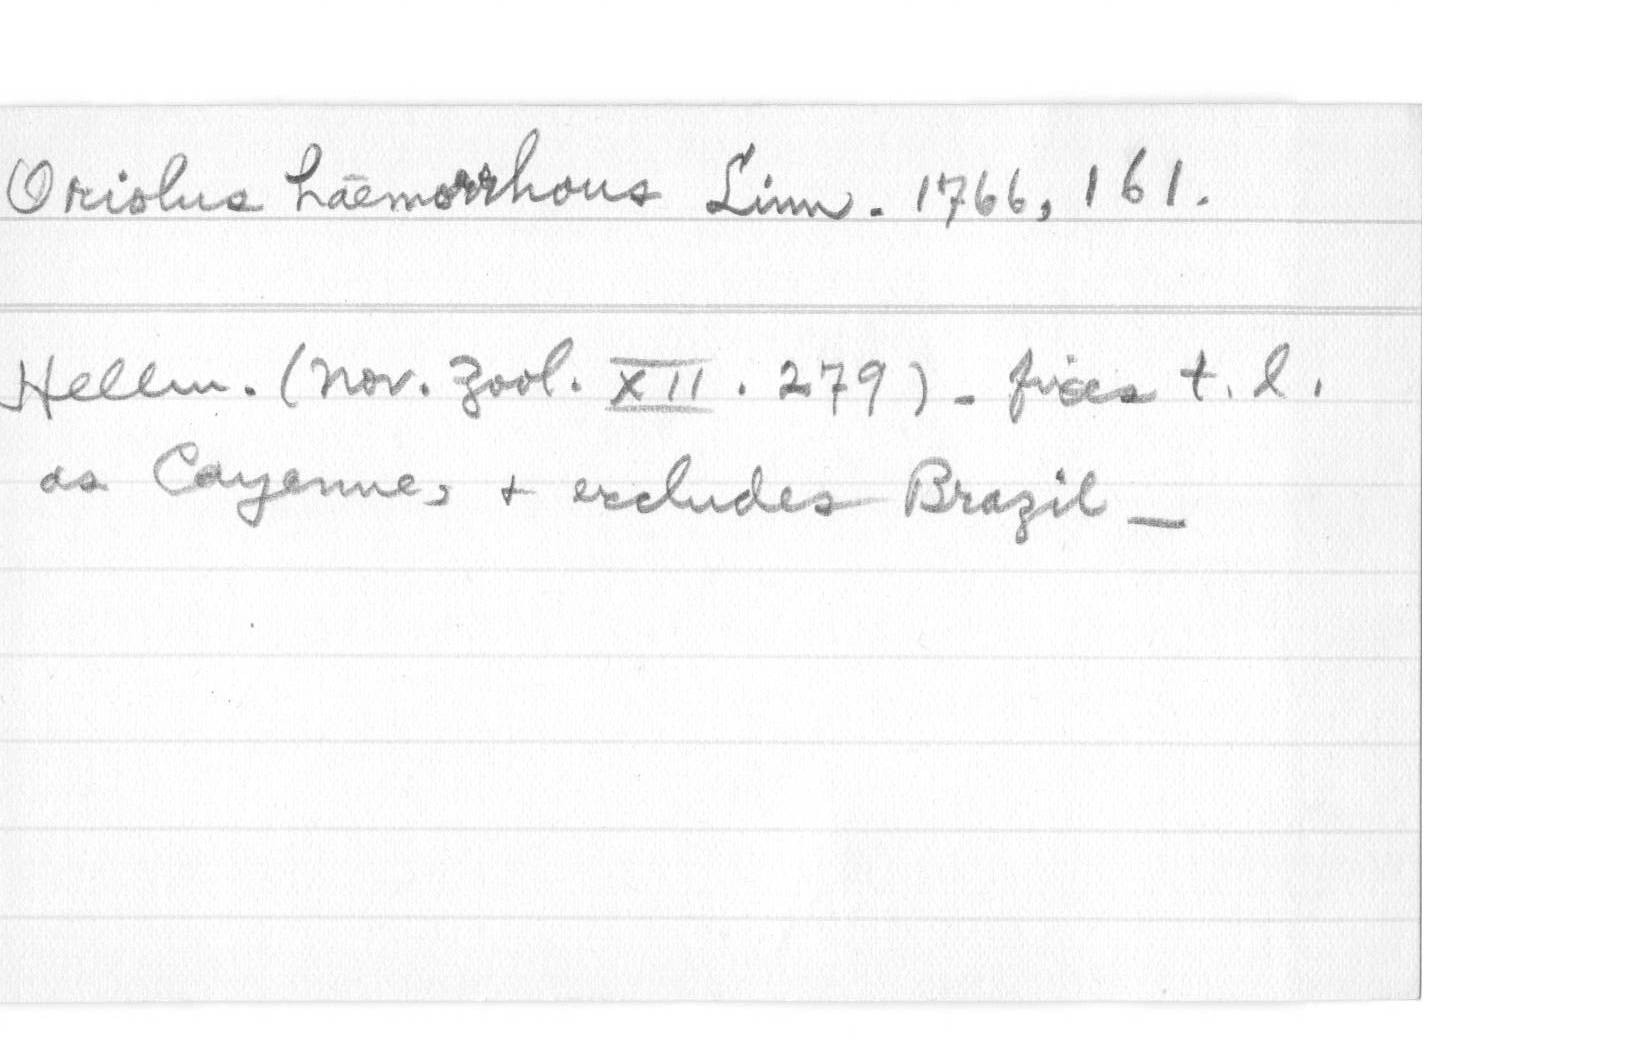 Oriolus haemorrhous Linn. 1766, 161.
Hellm. (Nov. Zool. XII. 279) - fixes t. l.
as Cayenne, + excludes Brazil —